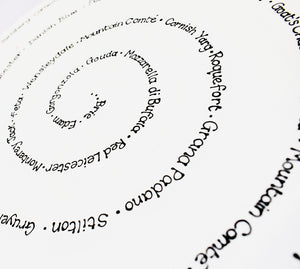 ... Brie • Edam • Gorgonzola • Gouda • Mozzarella di Bufala • Red Leicester • Monterey Jack • Feta • Wensleydale • Mountain Comté • Cornish Yarg • Roquefort • Grana Padano • Stilton • Gruyè
Mountain Comté
Goat's Che